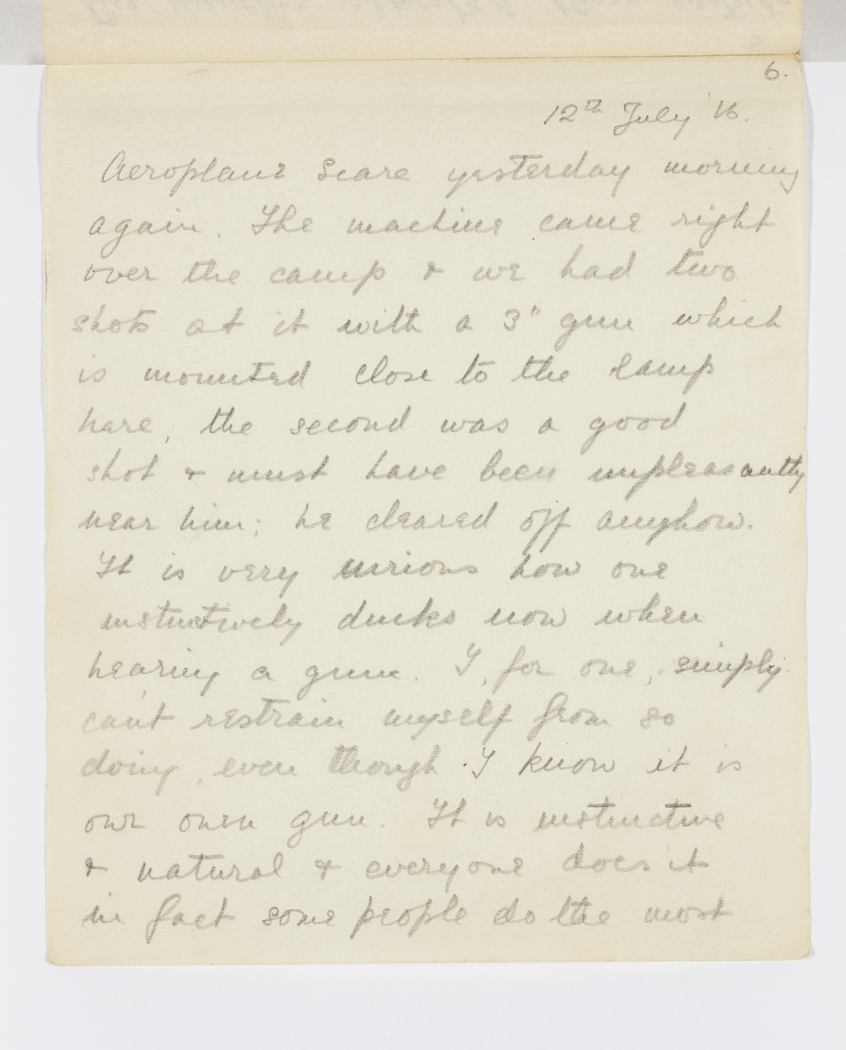 6.
12th July '16.
Aeroplane Scare yesterday morning
again. The machine came right
over the camp & we had two
shots at it with a 3" gun which
is mounted close to the camp
here, the second was a good
shot & must have been unpleasantly
near him; he cleared off anyhow.
It is very curious how one
instinctively ducks now when
hearing a gun. I, for one, simply
can't restrain myself from so
doing, even though I know it is
our own gun. It is instinctive
& natural & everyone does it
in fact some people do the most